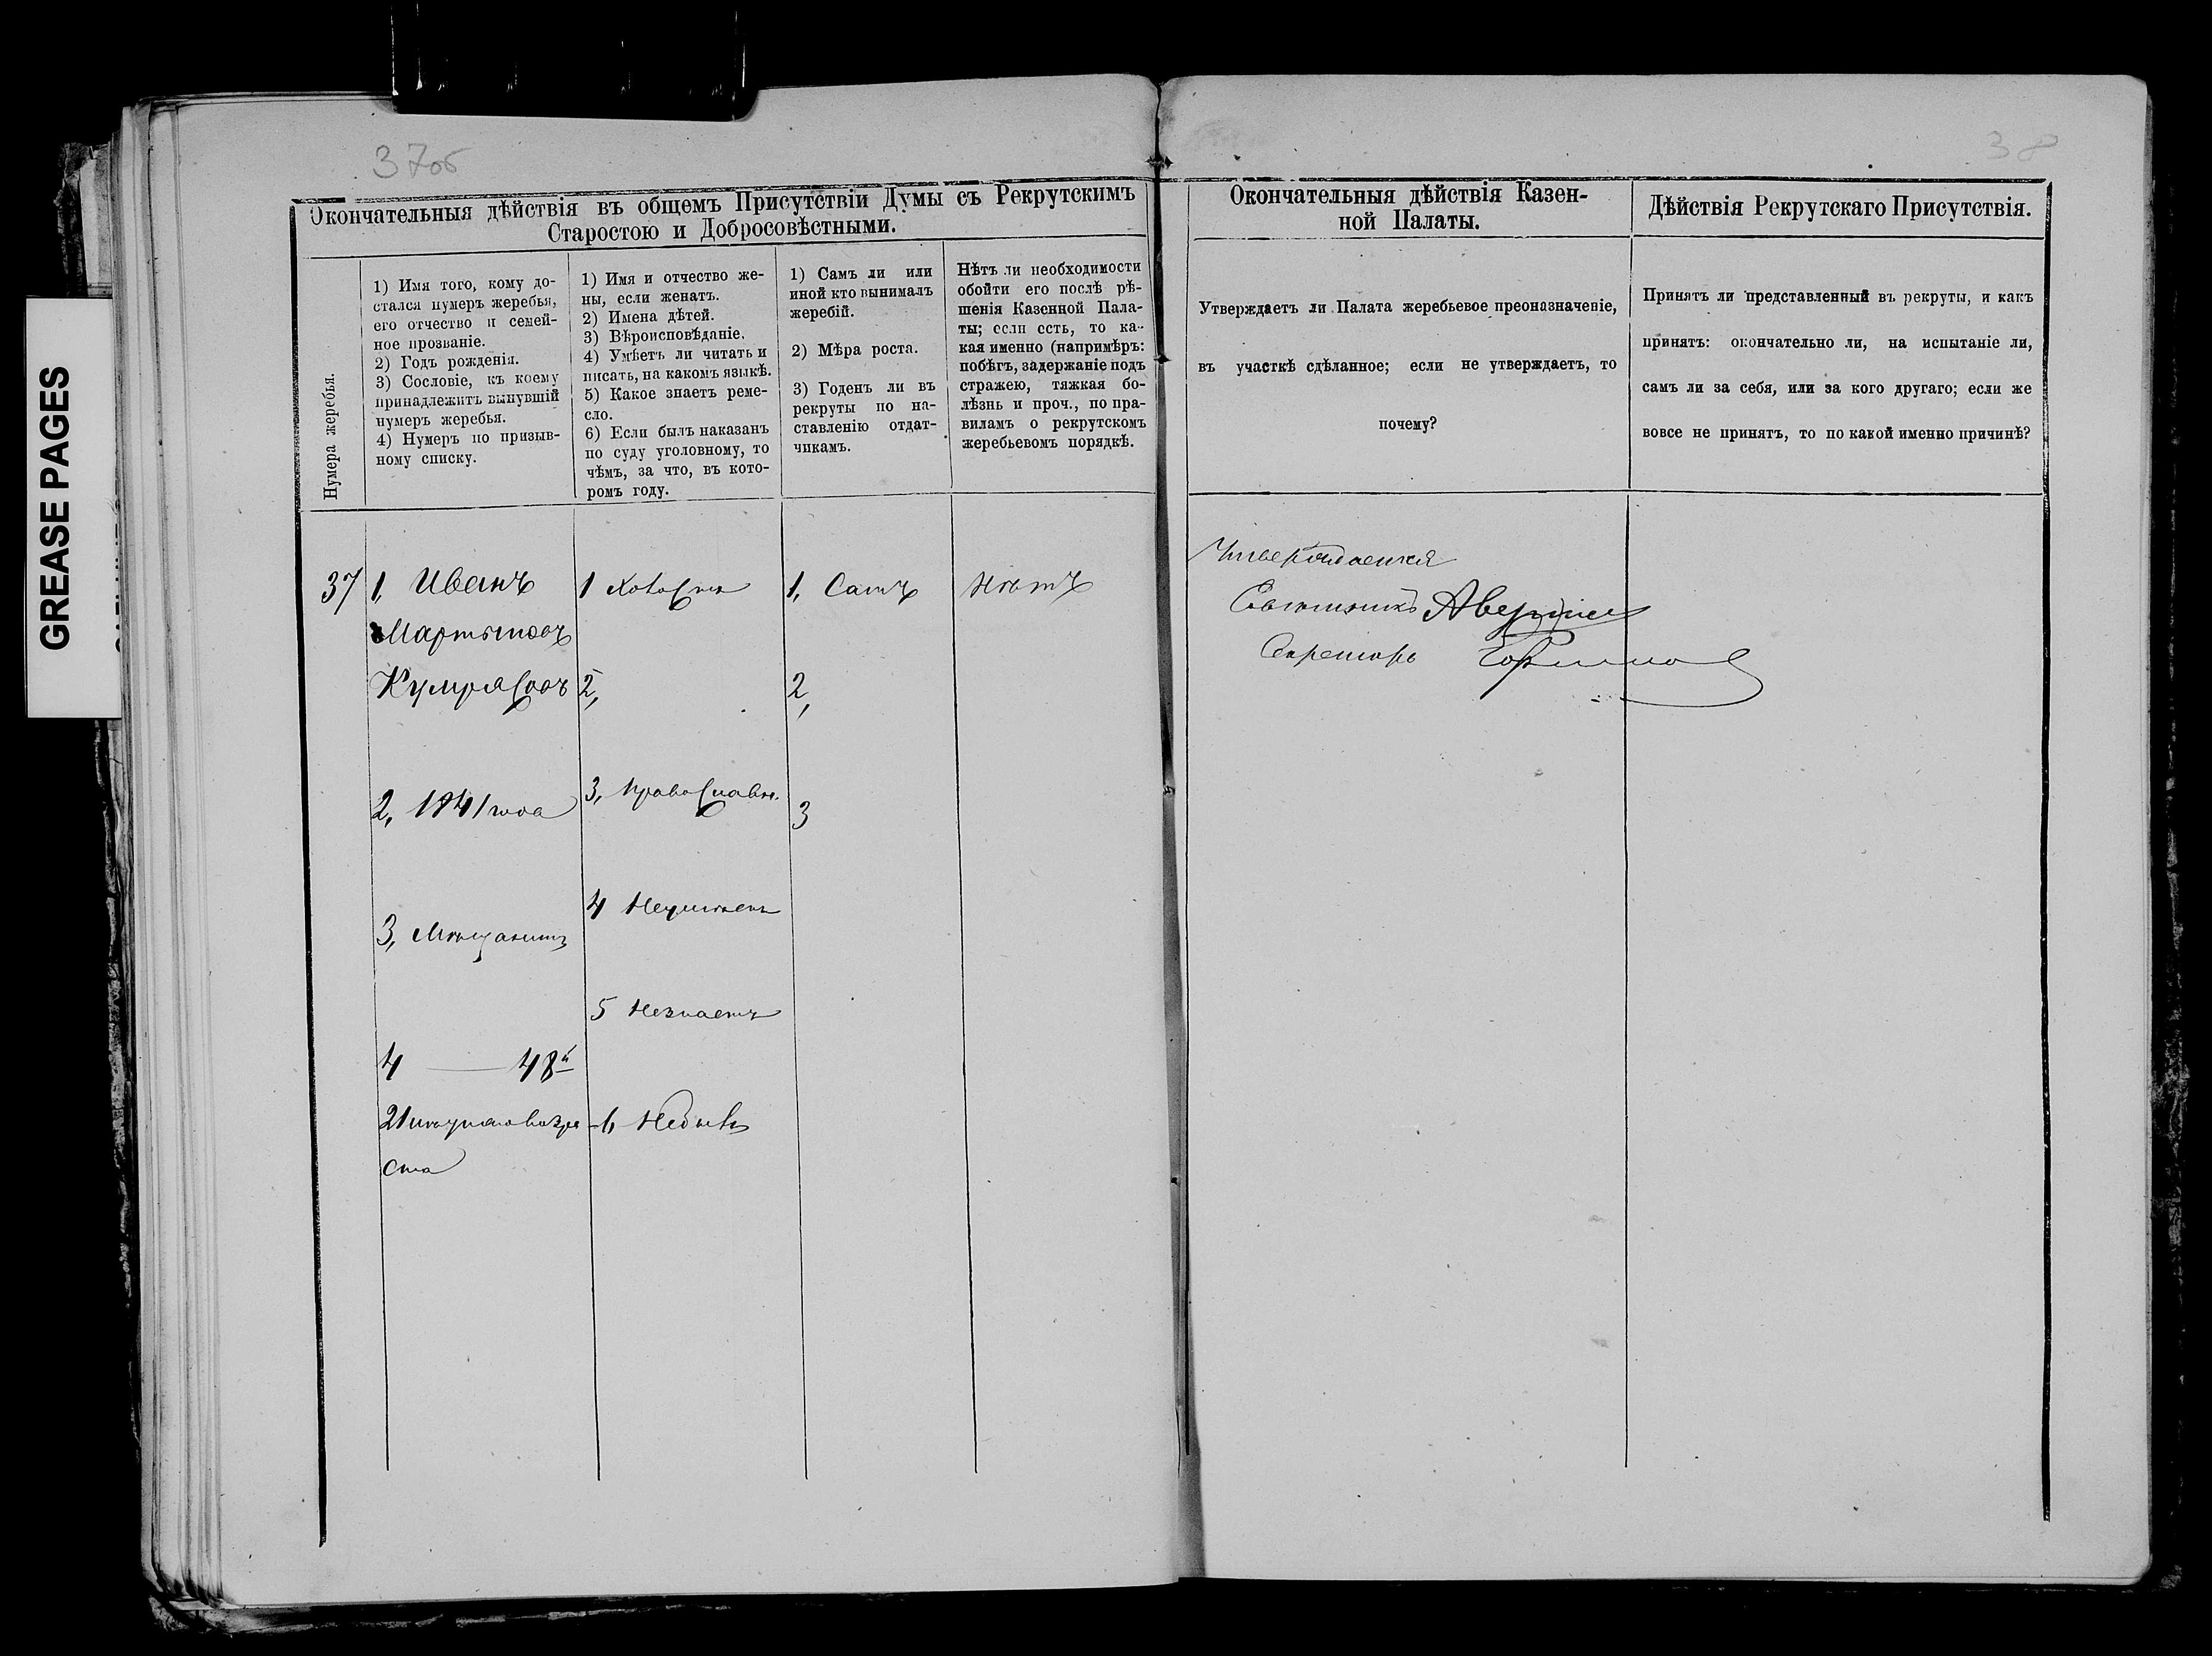 GREASE PAGES
37об
38
Окончательныя дѣйствія въ общемъ Присутствіи Думы съ Рекрутскимъ
Старостою и Добросовѣстными.
Нумера жеребья.
1) Имя того, кому до-
стался нумеръ жеребья,
его отчество и семей-
ное прозваніе.
2) Годъ рожденія.
3) Сословіе, къ коему
принадлежитъ вынувшій
нумеръ жеребья.
4) Нумеръ по призыв-
ному списку.
1) Имя и отчество же-
ны, если женатъ.
2) Имена дѣтей.
3) Вѣроисповѣданіе.
4) Умѣетъ ли читать и
писать, на какомъ языкѣ.
5) Какое знаетъ реме-
сло.
6) Если былъ наказанъ
по суду уголовному, то
чѣмъ, за что, въ кото-
ромъ году.
1) Самъ ли или
иной кто вынималъ
жеребій.
2) Мѣра роста.
3) Годенъ ли въ
рекруты по на-
ставленію отдат-
чикамъ.
Нѣтъ ли необходимости
обойти его послѣ рѣ-
шенія Казенной Пала-
ты; если есть, то ка-
кая именно (напримѣръ:
побѣгъ, задержаніе подъ
стражею, тяжкая бо-
лѣзнь и проч., по пра-
виламъ о рекрутскомъ
жеребьевомъ порядкѣ.
37
1, Иванъ
Мартыновъ
2, 1841 года
3, Мѣщанинъ
4 — 48й
21 лѣтняго возра
ста
1 Холостъ
2,
3, Православн.
4 Неумѣетъ
5 Незнаетъ
6 Небылъ
1, Самъ
2,
3
Нѣтъ
Окончательныя дѣйствія Казен-
ной Палаты.
Утверждаетъ ли Палата жеребьевое преоназначеніе,
въ участкѣ сдѣланное; если не утверждаетъ, то
почему?
Утверждается
Совѣтникъ
Секретарь
Дѣйствія Рекрутскаго Присутствія.
Принятъ ли представленный въ рекруты, и какъ
принятъ: окончательно ли, на испытаніе ли,
самъ ли за себя, или за кого другаго; если же
вовсе не принятъ, то по какой именно причинѣ?